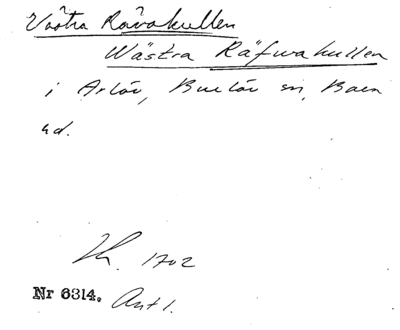 Västra Rävakullen
Wästra Räfwakullen
i Arlöv, Burlöv sn, Bara
hd.
Kh. 1702
Nr 6314. Ant 1.